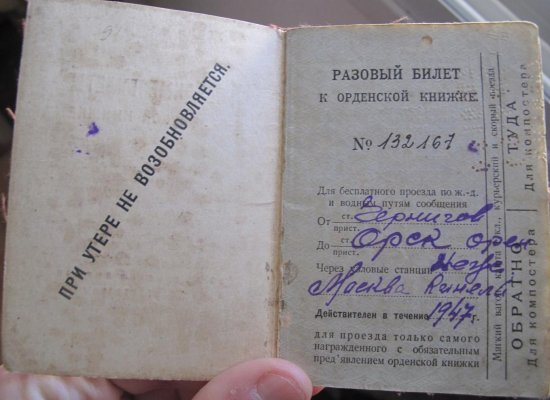 ПРИ УТЕРЕ НЕ ВОЗОБНОВЛЯЕТСЯ.
РАЗОВЫЙ БИЛЕТ
К ОРДЕНСКОЙ КНИЖКЕ
№ 132167
Для бесплатного проезда по ж.-д.
и водным путям сообщения
От ст. Чернигов
прист.
До ст. Орск
прист.
Через узловые станции
Москва Кинель
Действителен в течение 1947 г.
для проезда только самого
награжденного с обязательным
пред'явлением орденской книжки
Мягкий вагон, каюта I кл., курьерский и скорый поезда
ОБРАТНО ТУДА
Для компостера Для компостера